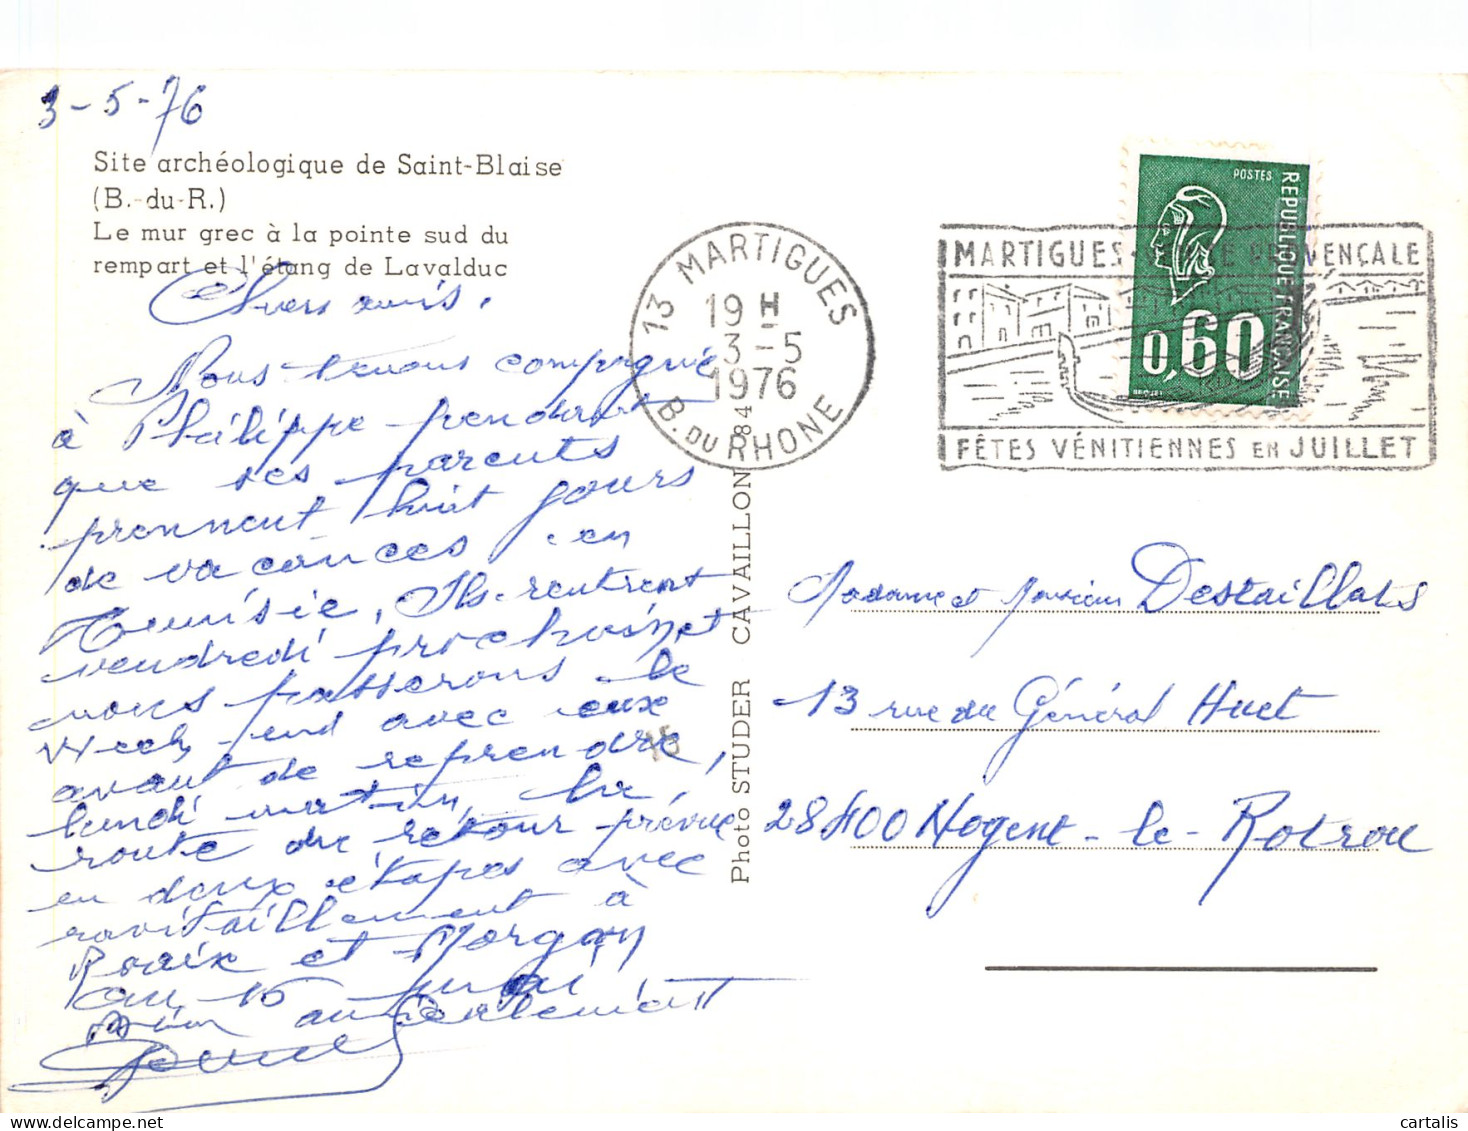 3-5-76
Site archéologique de Saint-Blaise
(B.-du-R.)
Le mur grec à la pointe sud du
rempart et l'étang de Lavalduc
Chers amis.
Nous tenons compagnie
à Philippe pendant
que ses parents
prennent huit jours
de vacances en
Tunisie. Ils rentrent
vendredi prochain et
nous passerons le
Week-end avec eux
avant de reprendre,
lundi matin, la
route du retour prévue
en deux étapes avec
ravitaillement à
Roaix et Morgon
au 10 mai
Bien amicalement
13 MARTIGUES
19 H
3-5
1976
B. DU RHONE
84
MARTIGUES PROVENÇALE
FÊTES VÉNITIENNES EN JUILLET
POSTES
RÉPUBLIQUE FRANÇAISE
0,60
BEQUET
Photo STUDER CAVAILLON
15
Madame et Monsieur Destaillats
13 rue du Général Huet
28400 Nogent-le-Rotrou
cartalis